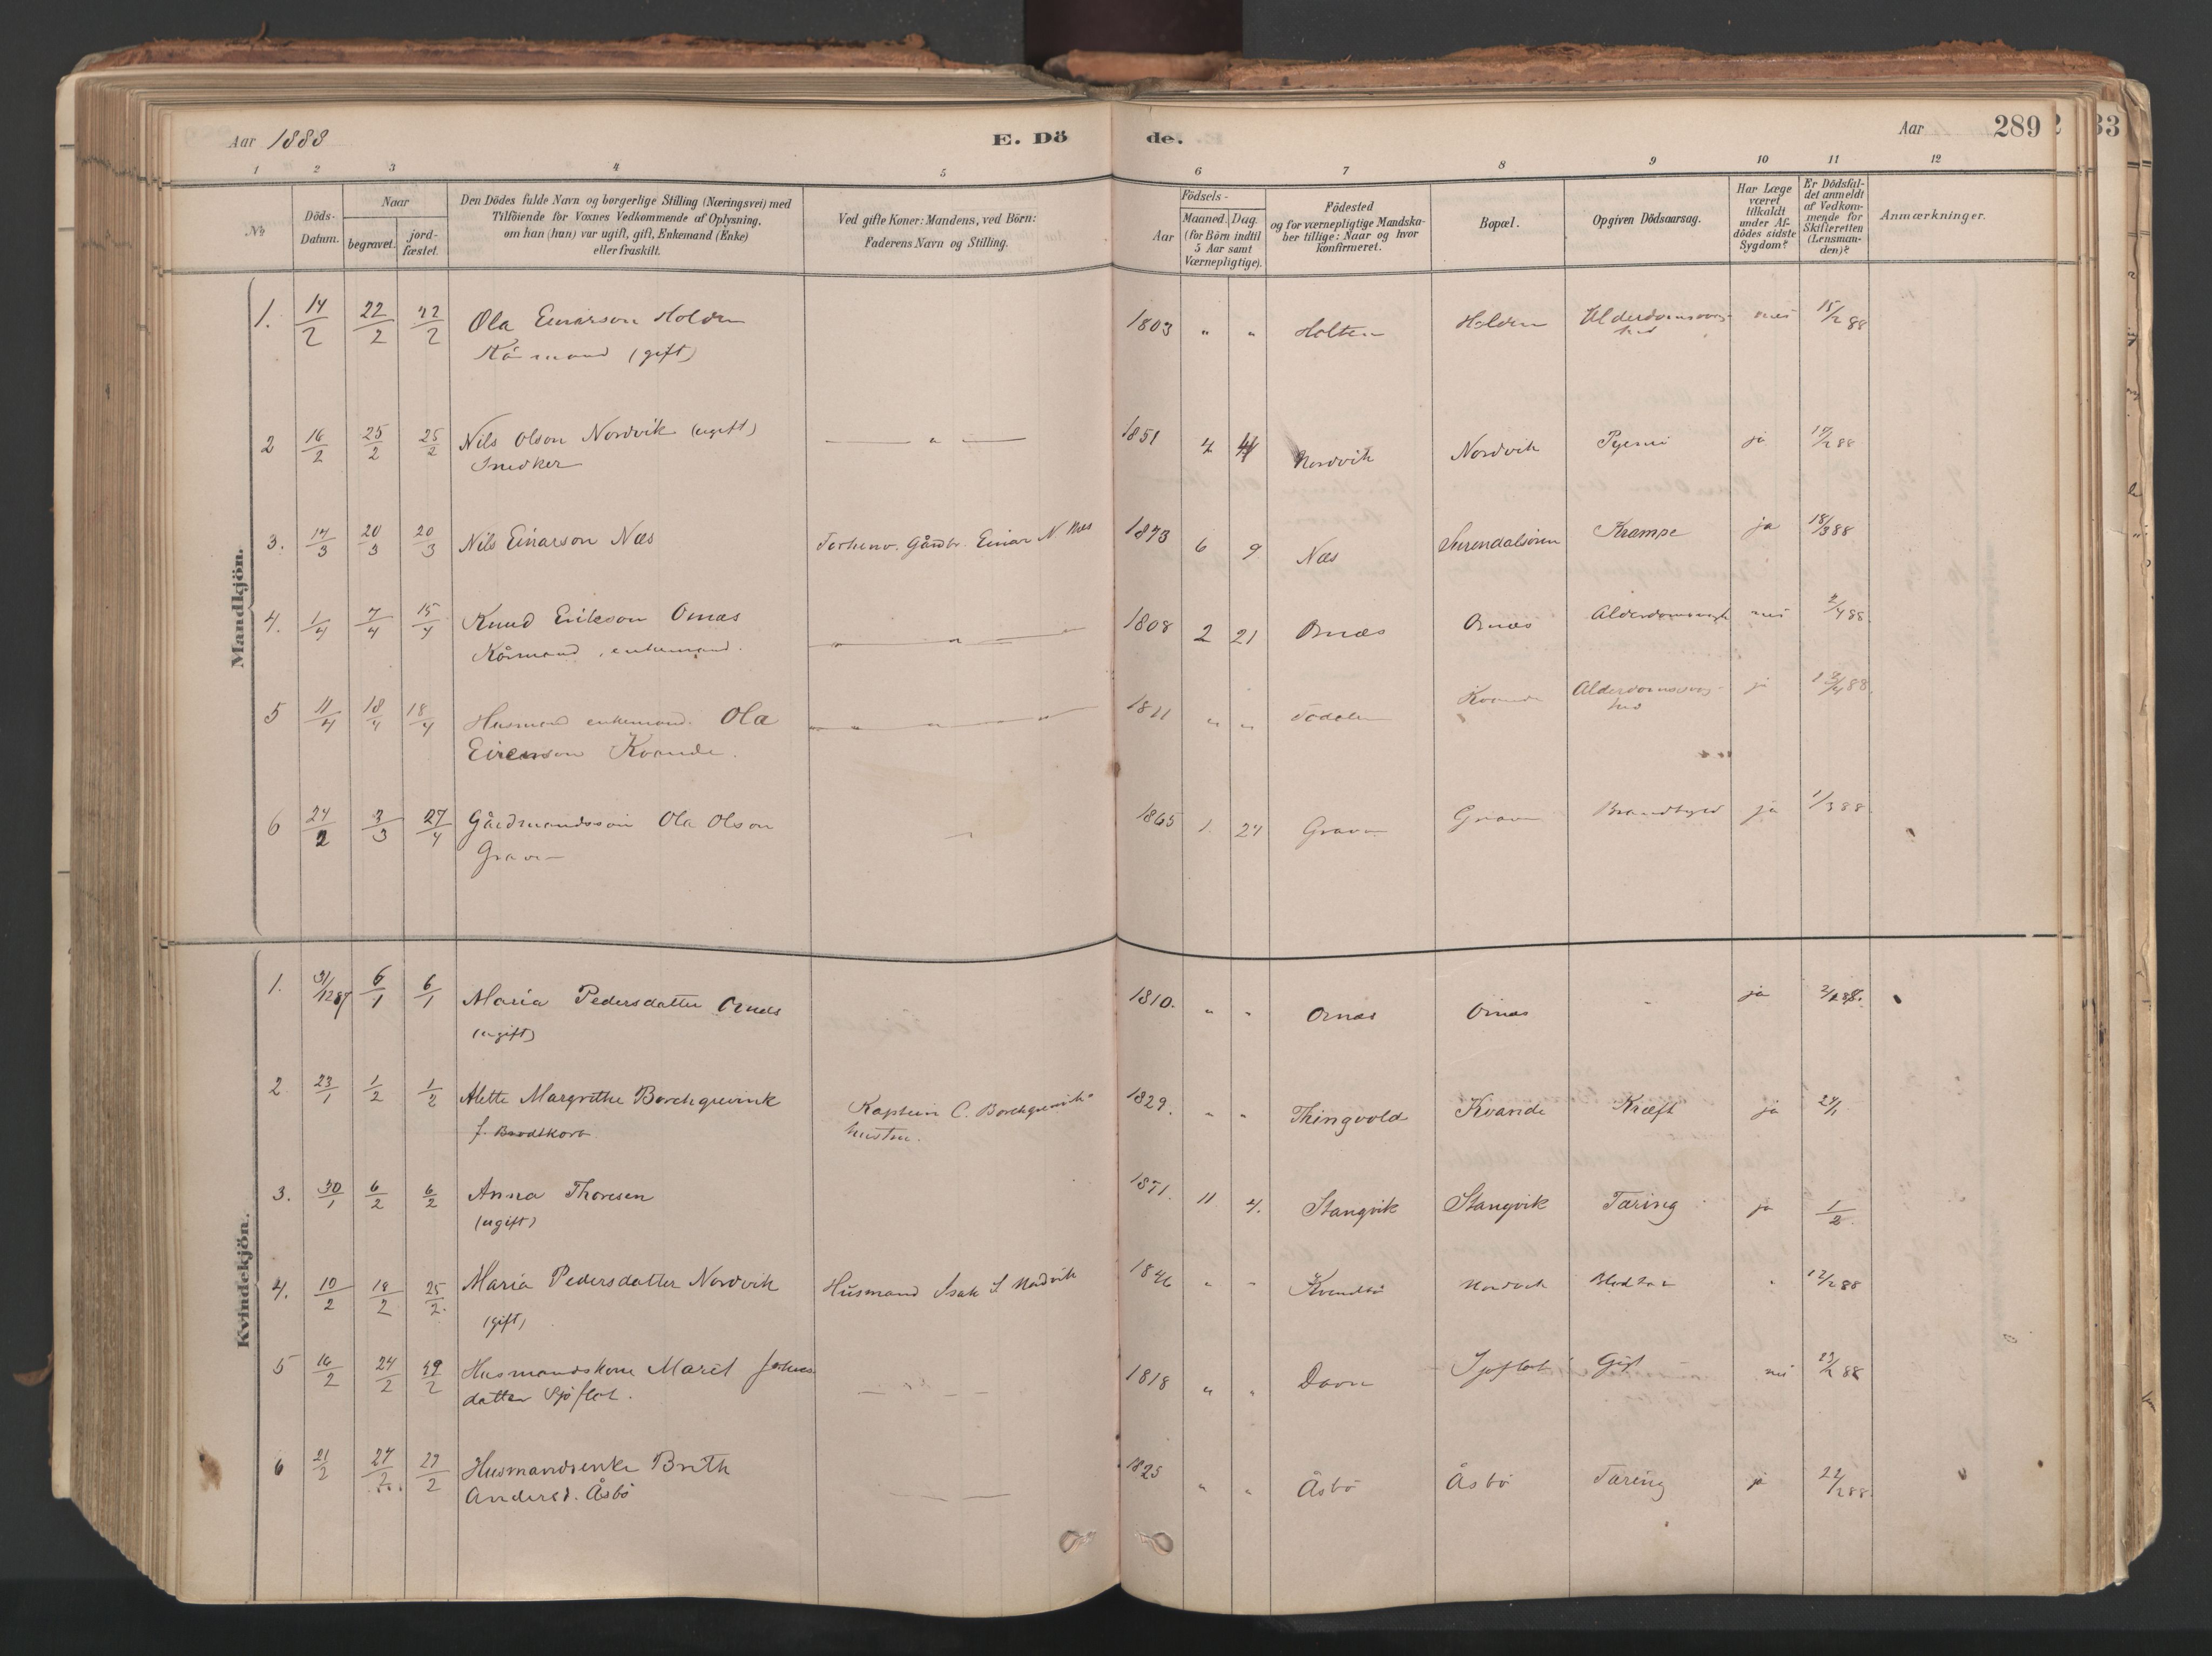 Aar 1888 E. Dö de. Aar 289
1 2 3 4 5 6 7 8 9 10 11 12
No
Döds-Datum.
Naar
begravet. jord-fæstet.
Den Dödes fulde Navn og borgerlige Stilling (Næringsvei) med
Tilföiende for Voxnes Vedkommende af Oplysning,
om han (hun) var ugift, gift, Enkemand (Enke)
eller fraskilt.
Ved gifte Koner: Mandens, ved Börn:
Faderens Navn og Stilling.
Födsels-
Aar Maaned. Dag.
(for Börn indtil
5 Aar samt
Værnepligtige).
Födested
og for værnepligtige Mandska-
ber tillige: Naar og hvor
konfirmeret.
Bopæl.
Opgiven Dödsaarsag.
Har Læge
været
tilkaldt
under Af-
dödes sidste
Sygdom?
Er Dödsfal-
det anmeldt
af Vedkom-
mende for
Skifteretten
(Lensman-
den)?
Anmærkninger.
Mandkjön.
1. 14/2 22/2 22/2 Ola Einarson Holden 1803 " " Holten Holden Alderdomssvag- nei 15/2 88
Kårmand (gift) hed
2 16/2 25/2 25/2 Nils Olson Nordvik (ugift) — " — 1851 4 Nordvik Nordvik Pyemi ja 18/2 88
Snedker
3. 17/3 20/3 20/3 Nils Einarson Næs Gårdbr. Einar N. Næs 1873 6 9 Næs Surendalsøren Krampe ja 18/3 88
4. 1/4 7/4 15/4 Knud Erikson Ornæs — " — 1808 2 21 Ornæs Ornæs Alderdomssvagh nei 2/4 88
Kårmand, enkemand.
5 11/4 18/4 18/4 Husmand enkemand. Ola " " " 1811 " " Todalen Kvande Alderdomssvag- ja 88
Eirenson Kvande. hed
6 24/2 3/3 27/4 Gårdmandssøn Ola Olson — 1865 1. 27 Graven Graven ja 1/3 88
Graven
Kvindekjön.
1. 31/12 87 6/1 6/1 Maria Pedersdatter Ornæs 1810. " " Ornæs Ornæs - ja 2/1 88.
(ugift)
2 23/1 1/2 1/2 Alette Margrethe Borchgrevink Kaptein C. Borchgrevinks 1829. " " Thingvold Kvande Kræft ja 24/1
f. Brodtkorb hustru.
3. 30/1 6/2 6/2 Anna Thoresen 1871. 11 4. Stangvik Stangvik Tæring ja 1/2.
(ugift)
4. 10/2 18/2 25/2. Maria Pedersdatter Nordvik Husmand Isak I Nordvik 1846 " " Kvendbø Nordvik " 12/2 88
(gift)
5 16/2 24/2 29/2 Husmandskone Marit Johns — 1818 " " Davn Sjøflot Gigt nei 23/2 88
datter Sjøflot.
6 21/2 27/2 29/2 Husmandsenke Brith — 1825 " " Åsbø Åsbø Tæring ja 22/2 88.
Andersd. Åsbø